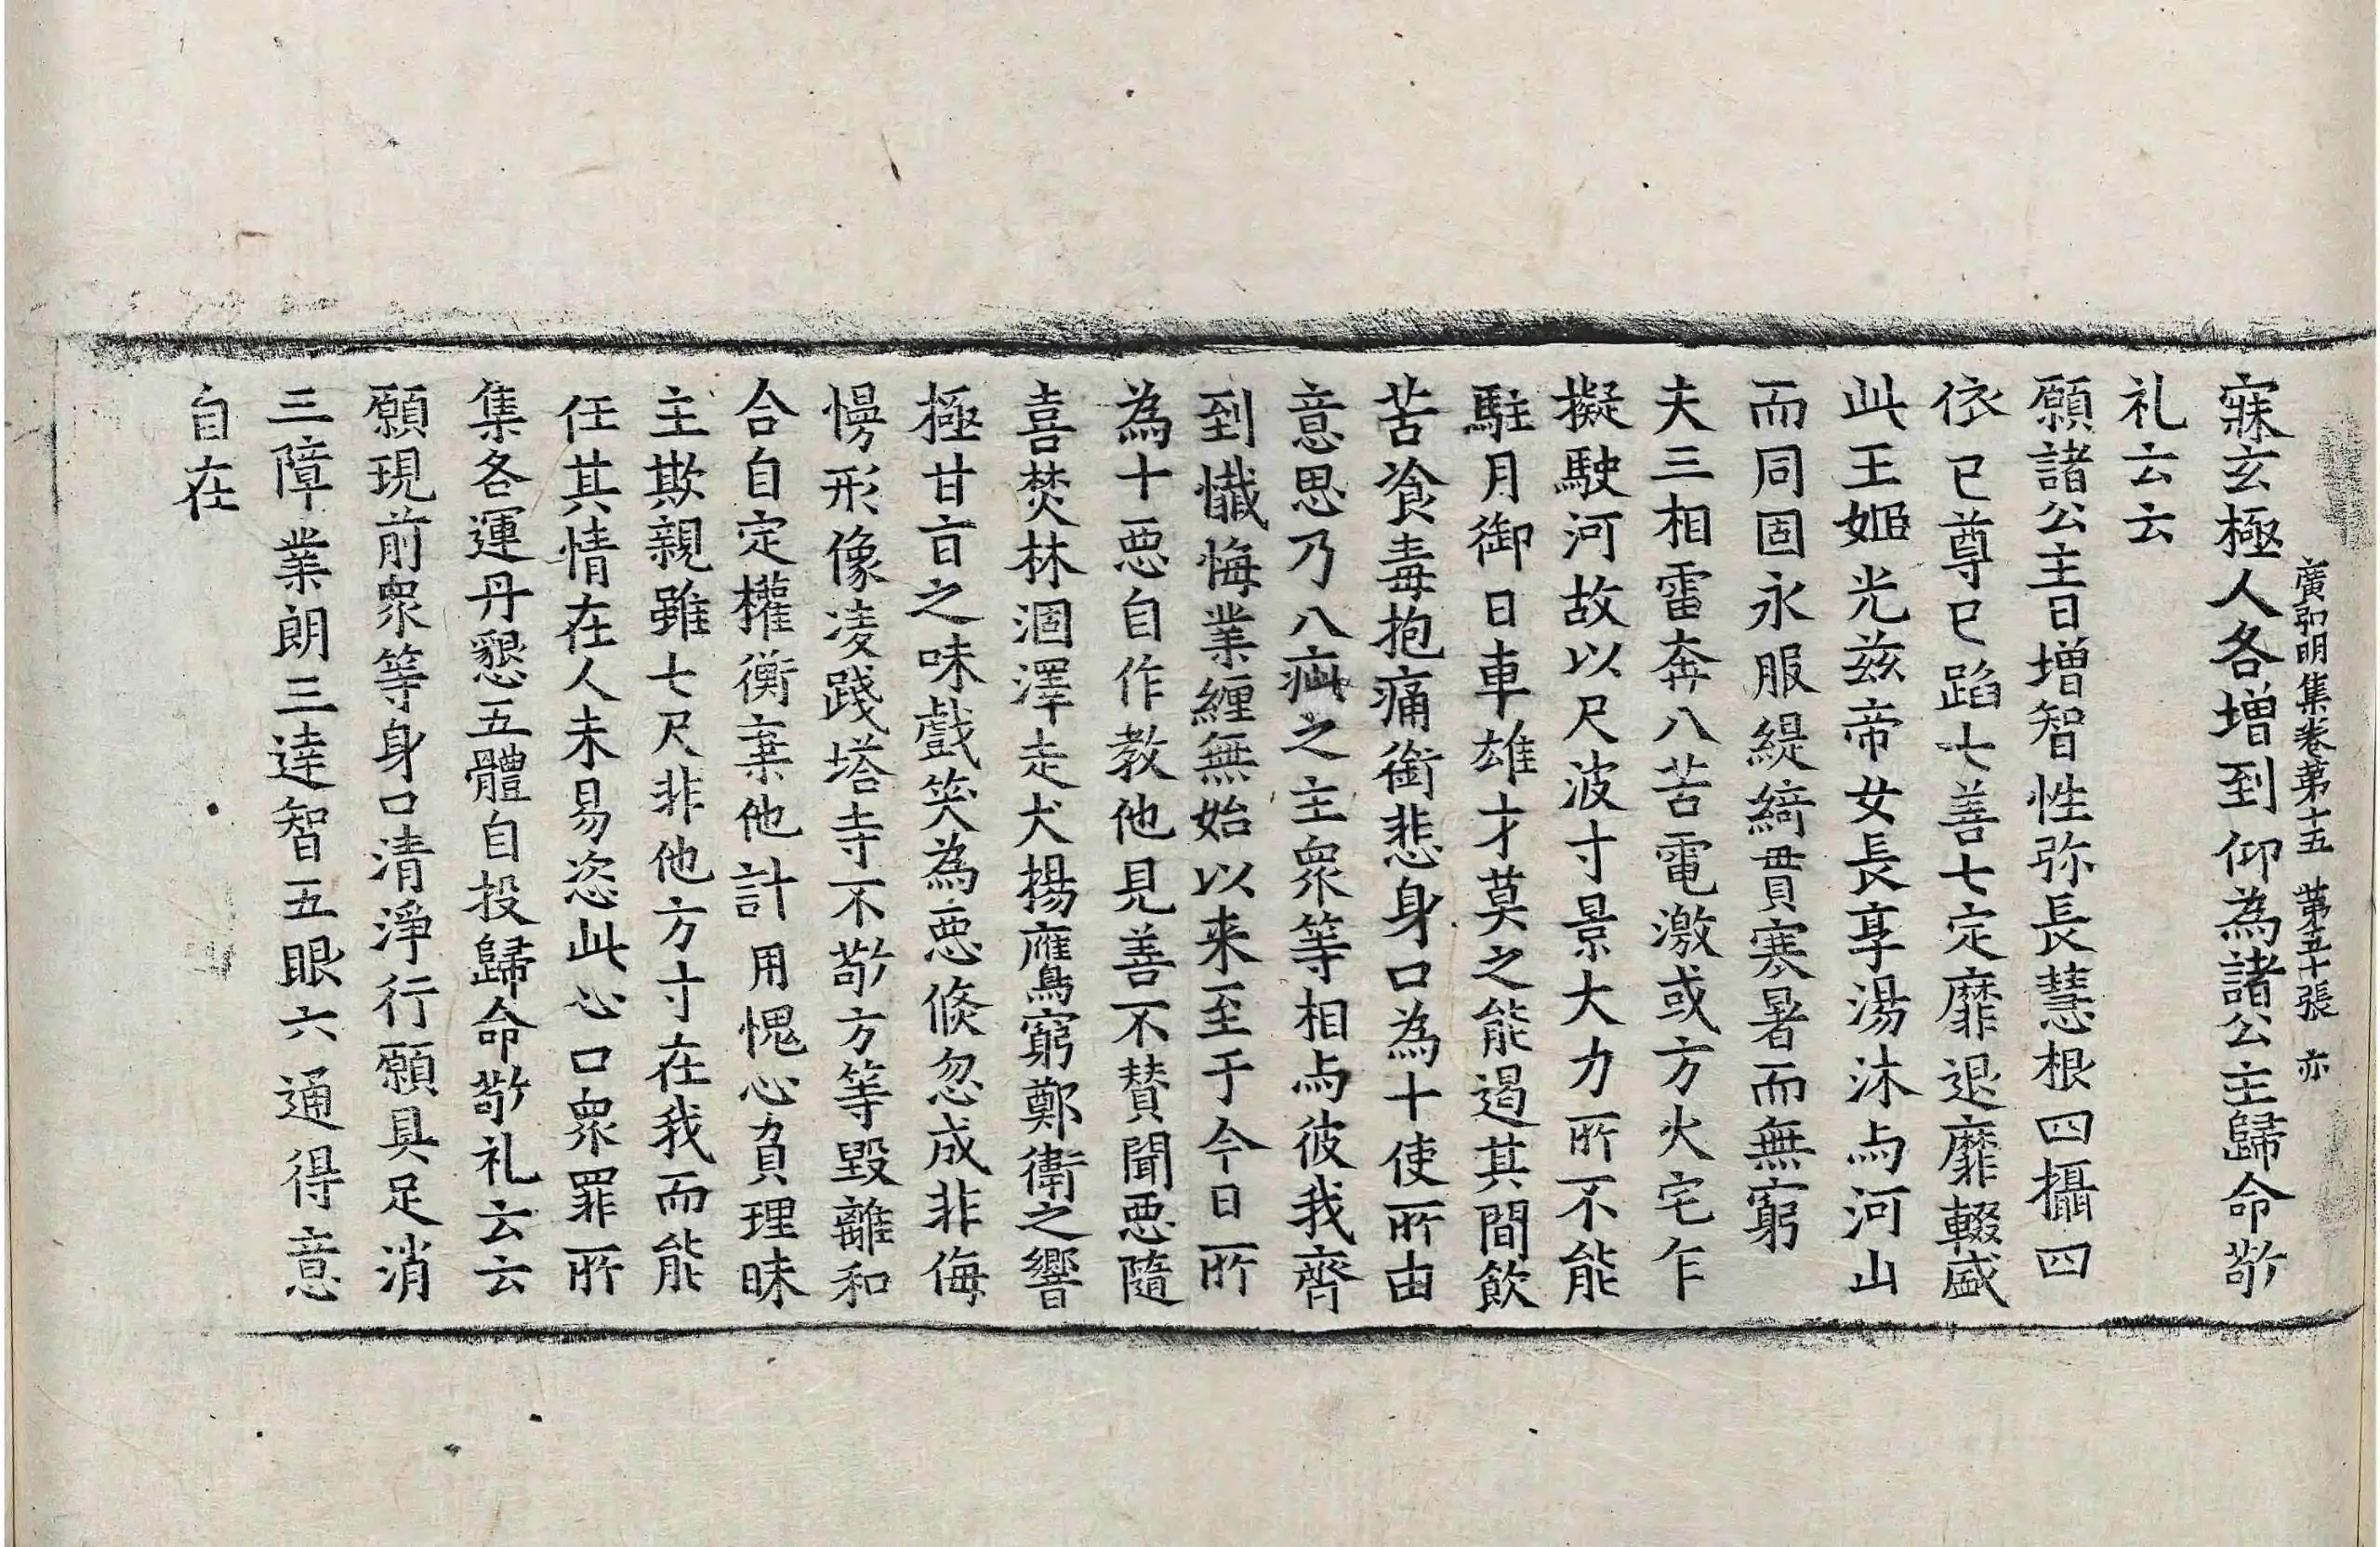 廣弘明集卷第十五 第五十張 亦
寐玄極人各增到仰為諸公主歸命敬
礼云云
願諸公主日增智性弥長慧根四攝四
依已尊已蹈七善七定靡退靡輟盛
此王姬光兹帝女長享湯沐与河山
而同固永服緹綺貫寒暑而無窮
夫三相雷奔八苦電激或方火宅乍
擬駛河故以尺波寸景大力所不能
駐月御日車雄才莫之能遏其間飲
苦飡毒抱痛銜悲身口為十使所由
意思乃八疵之主衆等相与彼我齊
到懺悔業纏無始以来至于今日所
為十惡自作教他見善不賛聞惡隨
喜焚林涸澤走犬揚鷹窮鄭衛之響
極甘旨之味戲笑為惡倐忽成非侮
慢形像凌踐塔寺不敬方等毀離和
合自定權衡棄他計用愧心負理昧
主欺親雖七尺非他方寸在我而能
任其情在人未易恣此心口衆罪所
集各運丹懇五體自投歸命敬礼云云
願現前衆等身口清淨行願具足消
三障業朗三達智五眼六通得意
自在